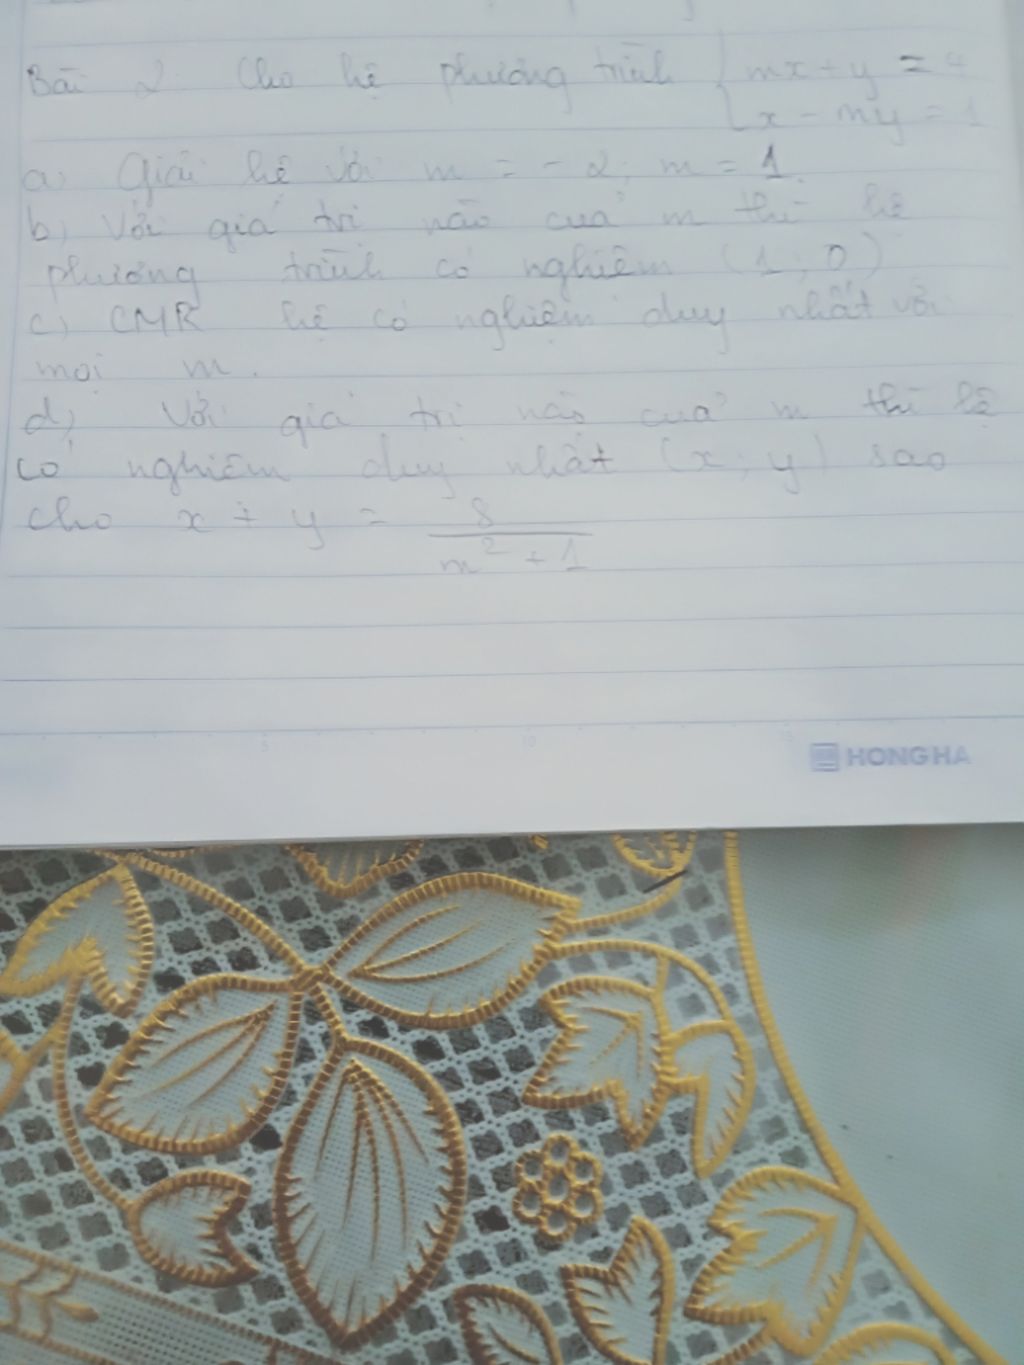 Bài 2. Cho hệ phương trình { mx + y = 4
x - my = 1
a) Giải hệ với m = - 2; m = 1
b) Với giá trị nào của m thì hệ
phương trình có nghiệm (1; 0)
c) CMR hệ có nghiệm duy nhất với
mọi m.
d) Với giá trị nào của m thì hệ
có nghiệm duy nhất (x; y) sao
cho x + y = 8
m² + 1
5 10 15
HONG HA